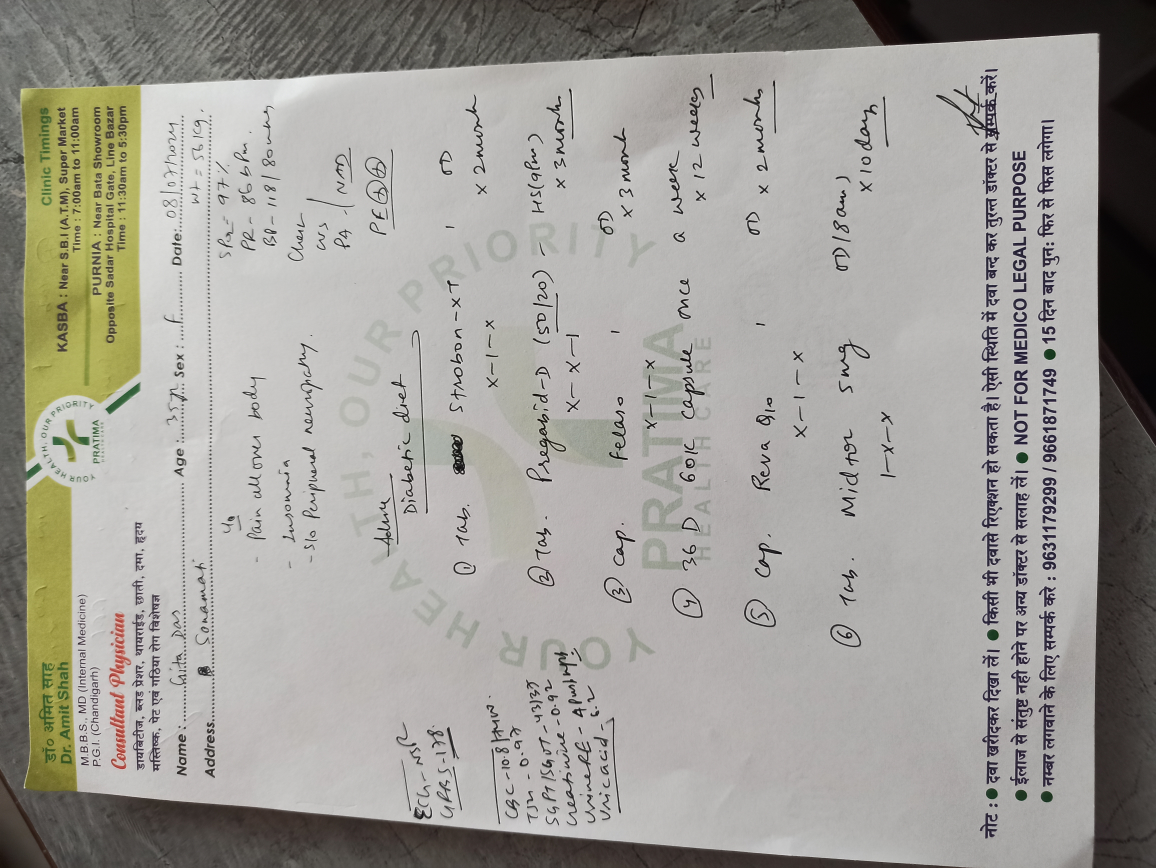 डॉ० अमित साह
Dr. Amit Shah
M.B.B.S., MD (Internal Medicine)
P.G.I. (Chandigarh)
Consultant Physician
डायबिटीज, ब्लड प्रेशर, थायराईड, छाती, दमा, हृदय
मस्तिष्क, पेट एवं गठिया रोग विशेषज्ञ
YOUR HEALTH, OUR PRIORITY
PRATIMA
Clinic Timings
KASBA : Near S.B.I (A.T.M), Super Market
Time : 7:00am to 11:00am
PURNIA : Near Bata Showroom
Opposite Sadar Hospital Gate, Line Bazar
Time : 11:30am to 5:30pm
Name : Gita Das Age : 35y Sex : F Date:
Address Sonamati WT = 56 kg.
SPO2 = 97%
PR - 86 bpm
BP - 118/80 mmHg
Chest
CVS
PA / NAD
c/o
- Pain all over body
- Insomnia
- S/o Peripheral neuropathy.
Advice
Diabetic diet
ECG - NSR
GRBS - 178
CBC - 10.8
TSH - 0.97
SGPT/SGOT - 43/37
Creatinine - 0.92
Urine RE -
Uric acid 6.2
① Tab. Strobon-XT 1 OD
x-1-x x 2 month
② Tab. Pregabid-D (50/20) - HS (9pm)
x-x-1 x 3 month
③ Cap. Felaso 1 OD
x-1-x x 3 month
④ 36 D 60K capsule once a week
x 12 weeks
⑤ Cap. Reva Q10 1 OD
x-1-x x 2 months
⑥ Tab. Midtor 5mg OD (8am)
1-x-x x 10 days
YOUR HEALTH, OUR PRIORITY
PRATIMA
HEALTH CARE
नोट : ● दवा खरीदकर दिखा लें। ● किसी भी दवासे रिएक्शन हो सकता है। ऐसी स्थिति में दवा बन्द कर तुरन्त डॉक्टर से सम्पर्क करें।
● ईलाज से संतुष्ट नही होने पर अन्य डॉक्टर से सलाह लें। ● NOT FOR MEDICO LEGAL PURPOSE
● नम्बर लगवाने के लिए सम्पर्क करे : 9631179299 / 9661871749 ● 15 दिन बाद पुनः फिर से फिस लगेगा।